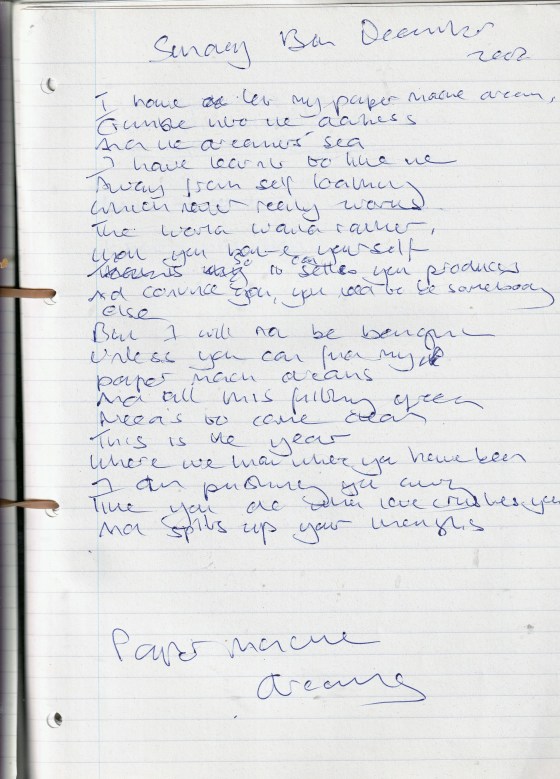 Sunday 8th December
2002
I have let my paper mache dream,
Crumble into the darkness
And the dreamers sea
I have learnt to like me
Away from self loathing
Which never really works
The world would rather,
you yourself
to sell you products
And convince you, you need to be somebody
Else
But I will not be
Unless you can find my
paper mach dreams
And all this filthy green
Needs to come clean
This is the year
Where we know where you have been
I am pushing you away
Time you love crushes you
And splits up your thoughts
Paper mache
dreams